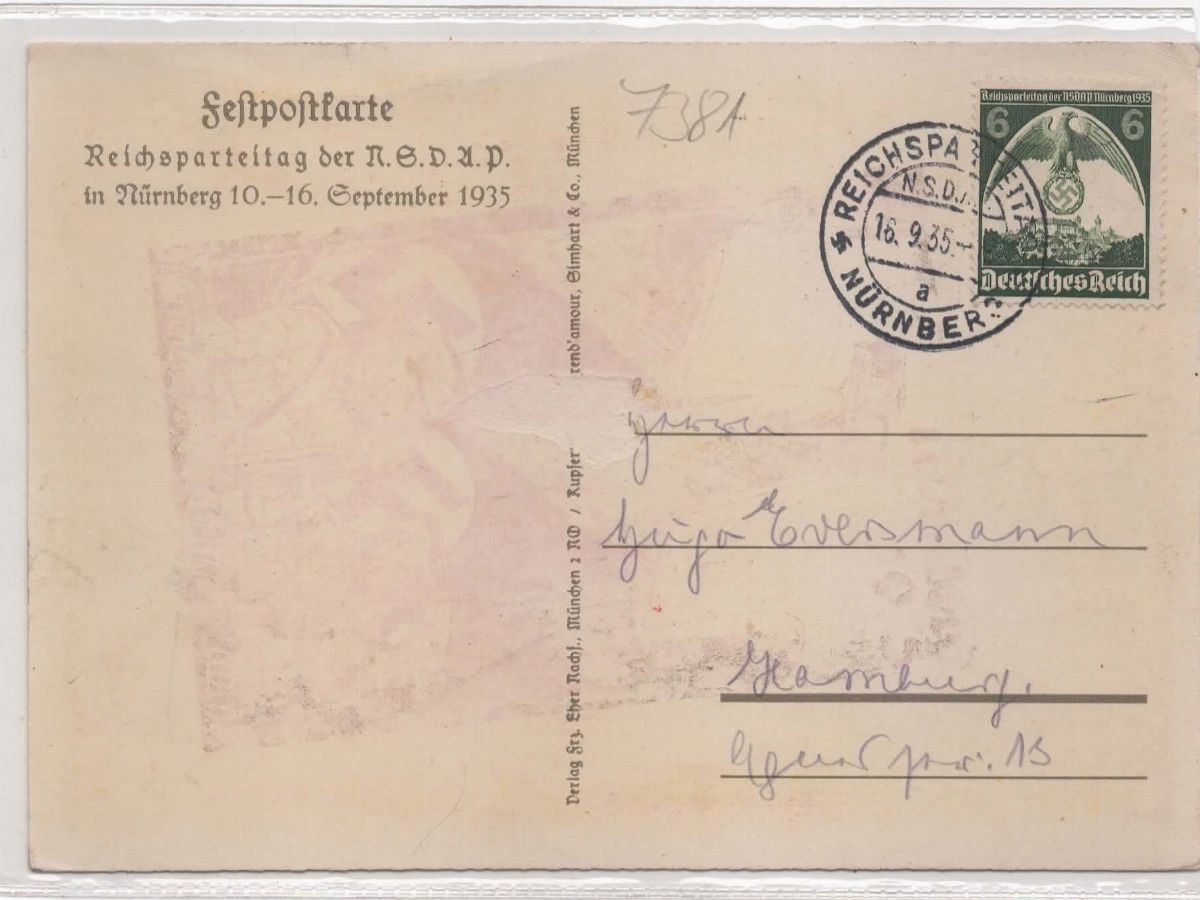 Festpostkarte
Reichsparteitag der N.S.D.A.P.
in Nürnberg 10.–16. September 1935
Verlag Frz. Eher Nachf., München 2 NO / Kupfer
rend'amour, Simhart & Co., München
7381
REICHSPA TEITA
N.S.D.A.
16.9.35.–
a
NÜRNBERG
Reichsparteitag der NSDAP. Nürnberg 1935
6 6
Deutsches Reich
Herrn
Hugo Eversmann
Hamburg.
13